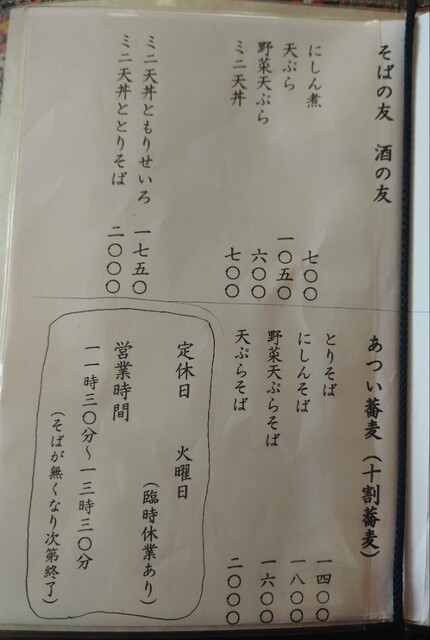 そばの友　酒の友
にしん煮　七〇〇
天ぷら　一〇五〇
野菜天ぷら　六〇〇
ミニ天丼　七〇〇
ミニ天丼ともりせいろ　一七五〇
ミニ天丼ととりそば　二〇〇〇
あつい蕎麦（十割蕎麦）
とりそば　一四〇〇
にしんそば　一八〇〇
野菜天ぷらそば　一六〇〇
天ぷらそば　二〇〇〇
定休日　火曜日
（臨時休業あり）
営業時間
一一時三〇分〜一三時三〇分
（そばが無くなり次第終了）